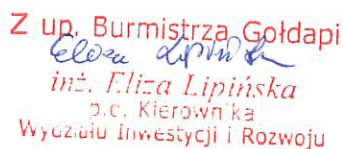 Z up. Burmistrza Gołdapi
Eliza Lipińska
inż. Eliza Lipińska
p.o. Kierownika
Wydziału Inwestycji i Rozwoju